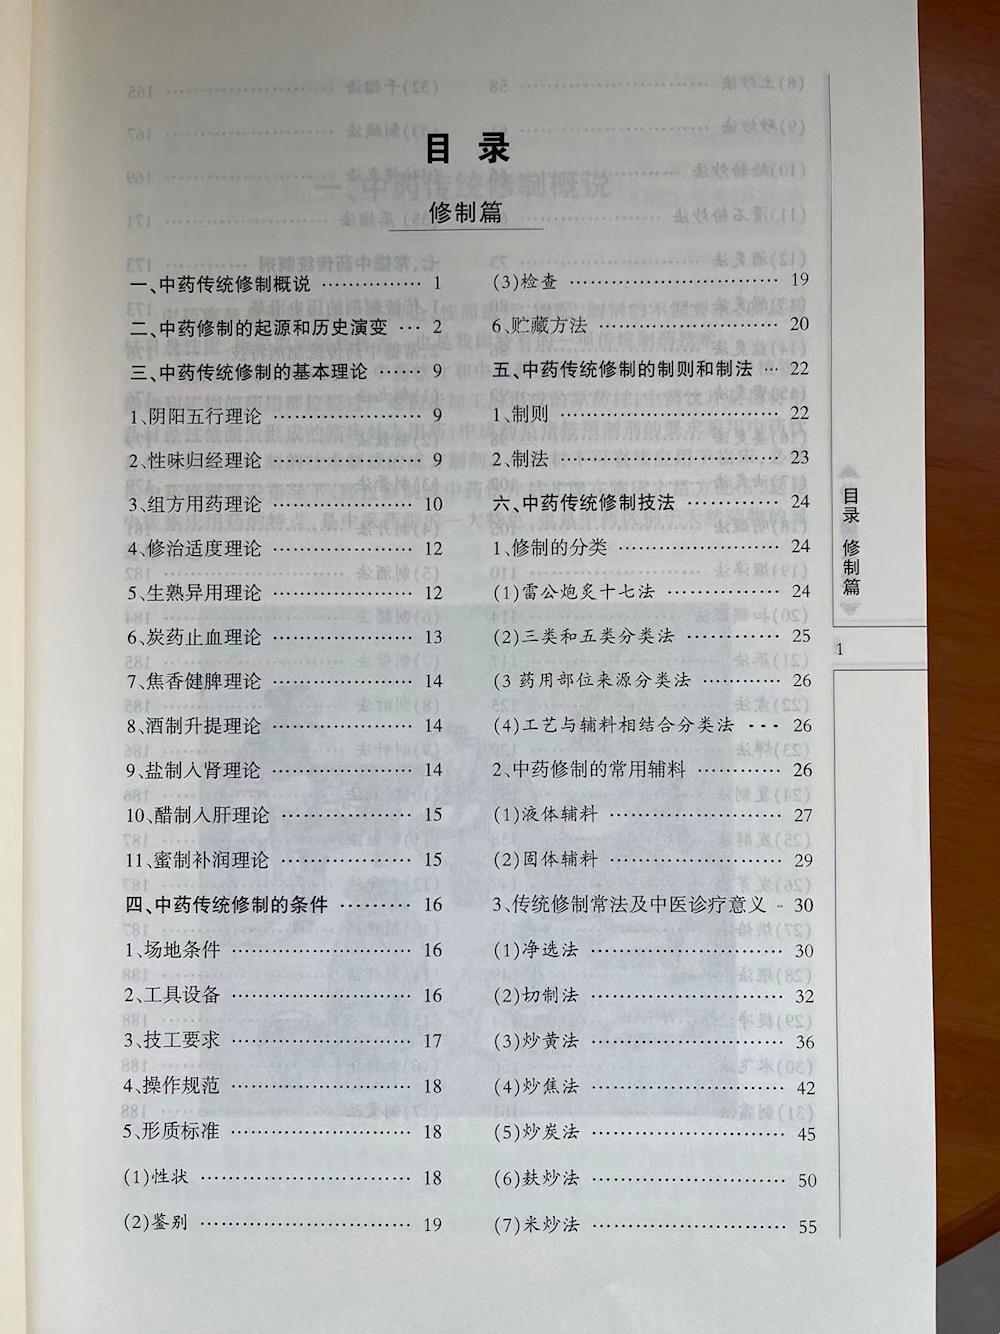 目 录
修制篇
一、中药传统修制概说 …………… 1
二、中药修制的起源和历史演变 … 2
三、中药传统修制的基本理论 …… 9
1、阴阳五行理论 ………………… 9
2、性味归经理论 ………………… 9
3、组方用药理论 ………………… 10
4、修治适度理论 ………………… 12
5、生熟异用理论 ………………… 12
6、炭药止血理论 ………………… 13
7、焦香健脾理论 ………………… 14
8、酒制升提理论 ………………… 14
9、盐制入肾理论 ………………… 14
10、醋制入肝理论 ……………… 15
11、蜜制补润理论 ……………… 15
四、中药传统修制的条件 ……… 16
1、场地条件 …………………… 16
2、工具设备 …………………… 16
3、技工要求 …………………… 17
4、操作规范 …………………… 18
5、形质标准 …………………… 18
(1)性状 ……………………… 18
(2)鉴别 ……………………… 19
(3)检查 ……………………… 19
6、贮藏方法 …………………… 20
五、中药传统修制的制则和制法 … 22
1、制则 ………………………… 22
2、制法 ………………………… 23
六、中药传统修制技法 ………… 24
1、修制的分类 ………………… 24
(1)雷公炮炙十七法 …………… 24
(2)三类和五类分类法 ………… 25
(3 药用部位来源分类法 ……… 26
(4)工艺与辅料相结合分类法 … 26
2、中药修制的常用辅料 ……… 26
(1)液体辅料 ………………… 27
(2)固体辅料 ………………… 29
3、传统修制常法及中医诊疗意义 … 30
(1)净选法 …………………… 30
(2)切制法 …………………… 32
(3)炒黄法 …………………… 36
(4)炒焦法 …………………… 42
(5)炒炭法 …………………… 45
(6)麸炒法 …………………… 50
(7)米炒法 …………………… 55
目录 修制篇
1